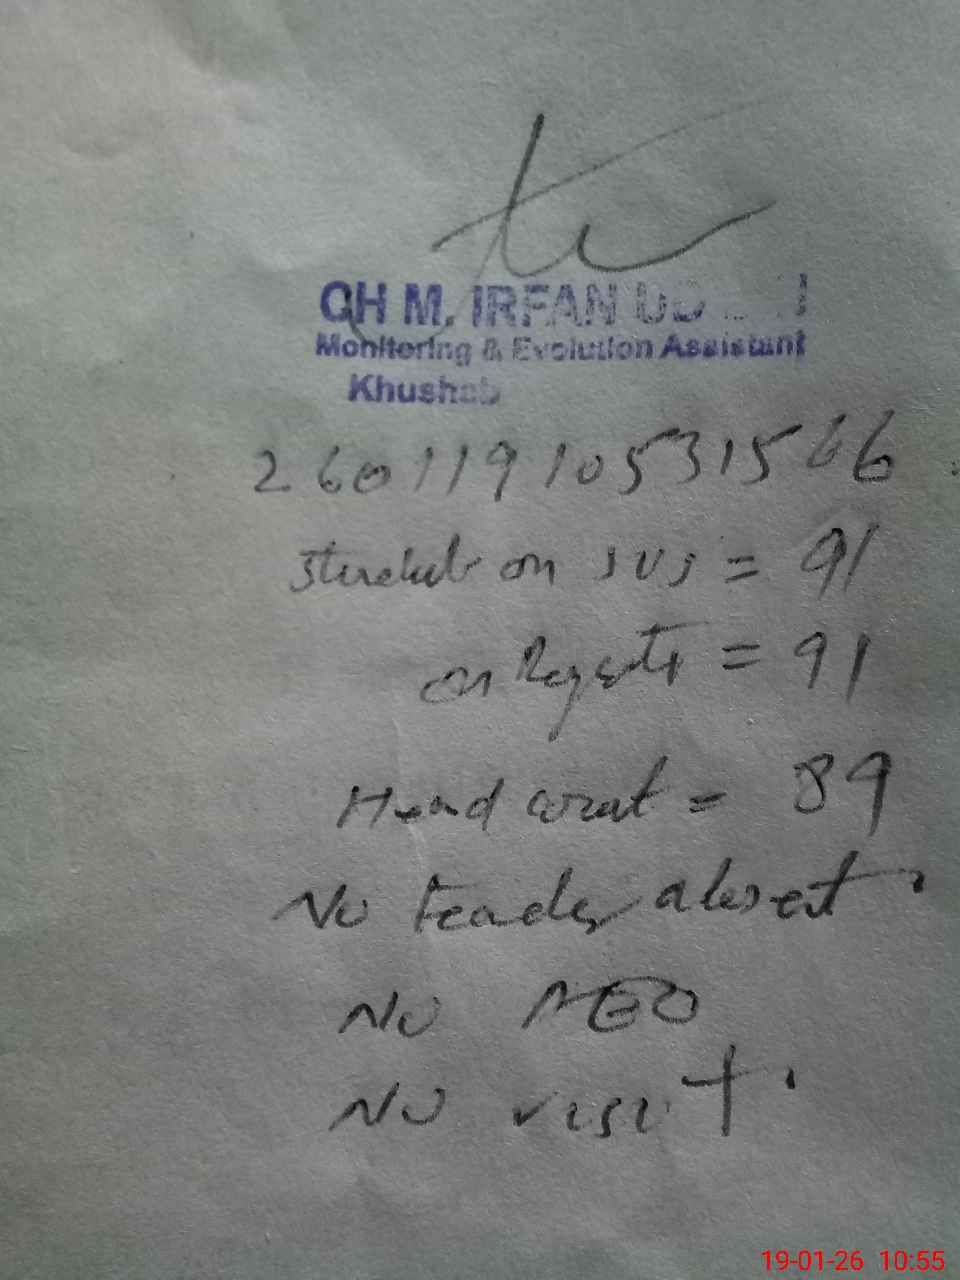 CH M. IRFAN
Monitoring & Evolution Assistant
Khushab
26011910531566
on SUS = 91
on = 91
Head count = 89
No teacher absent
No AEO
No visit.
19-01-26 10:55